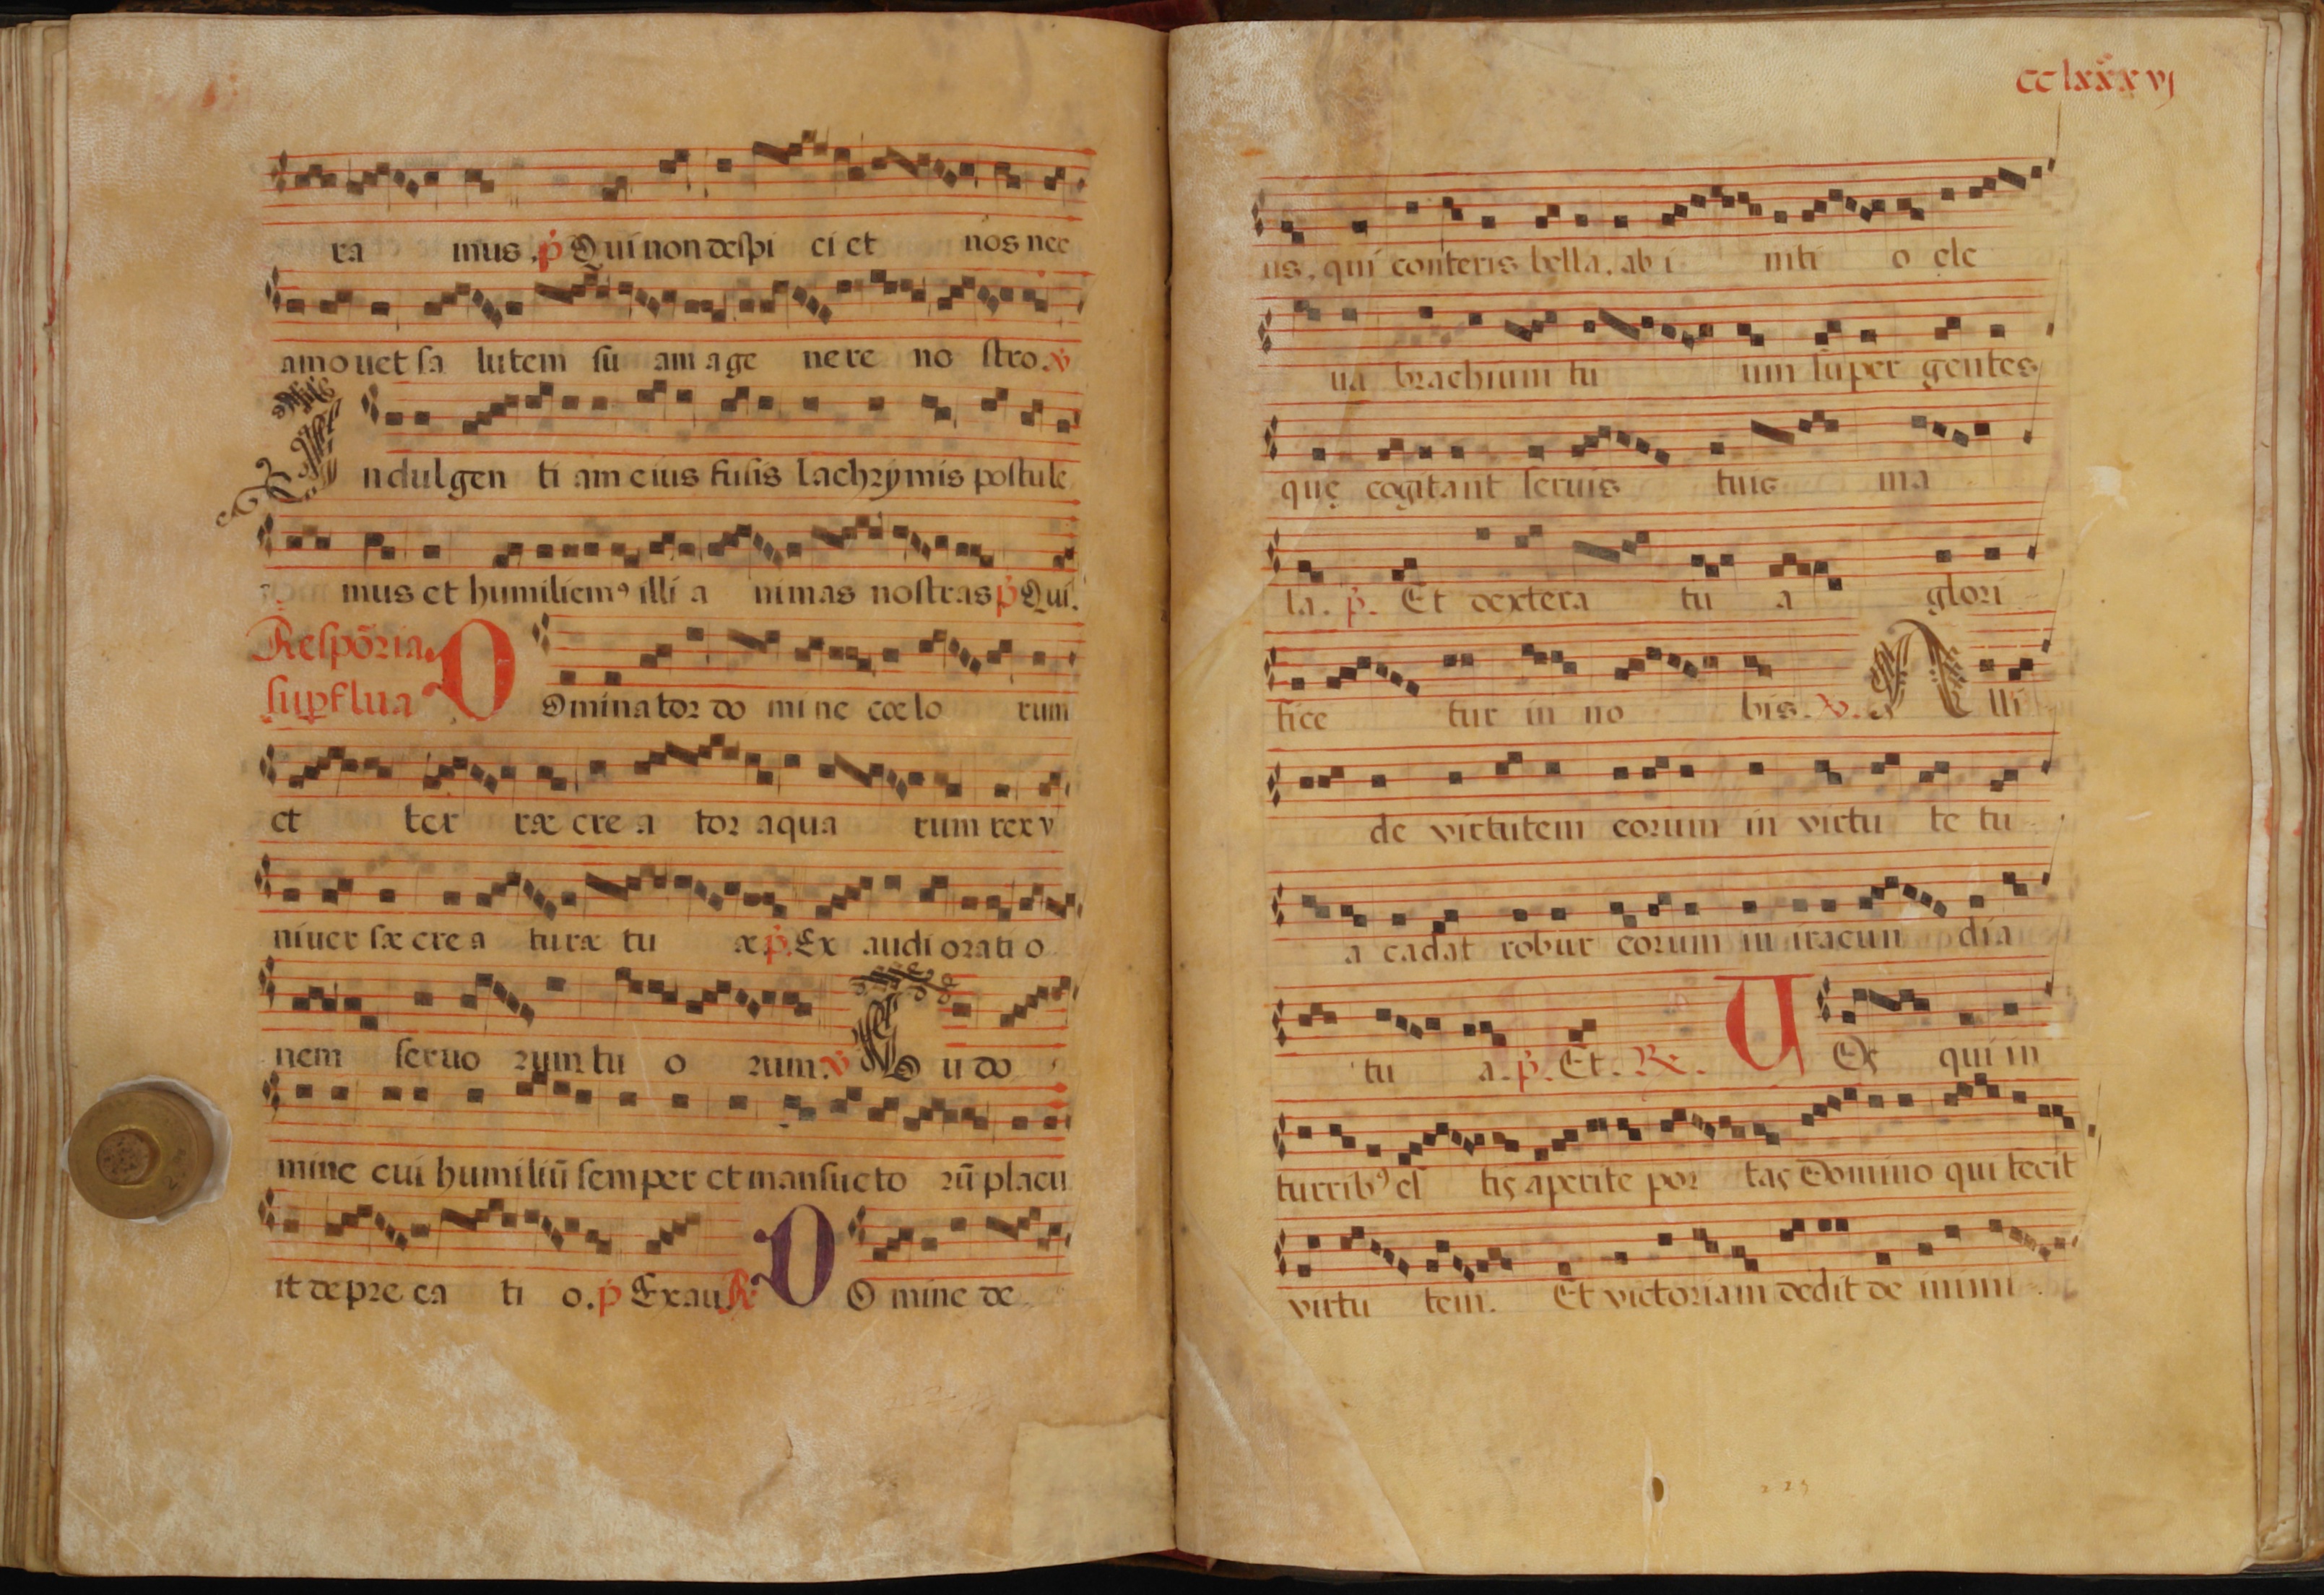 ra mus. p̃ Qui non despi ci et nos nec
amouet sa lutem su am a ge ne re no stro. ℣
Indulgen ti am eius fusis lachrymis postule
mus et humiliemꝰ illi a nimas nostras p̃ Qui.
Respõria
supflua
DOminator do mi ne cœlo rum
et ter ræ cre a tor aqua rum rex v
niuer sæ cre a turæ tu æ p̃. Ex audi orati o
nem seruo rum tu o rum. ℣ Tu do
mine cui humiliũ semper et mansueto rũ placu
it depre ca ti o. p̃ Exau ℟ DOmine de
cclxxxvj
us. qui conteris bella. ab i niti o ele
ua brachium tu um super gentes
quę cogitant seruis tuis ma
la. p̃. Et dextera tu a glori
fice tur in no bis. ℣. Alli
de virtutem eorum in virtu te tu
a cadat robur eorum in iracun dia
tu a. p̃. Et. ℟. VOs qui in
turribꝰ es tis aperite por tas Domino qui fecit
virtu tem. Et victoriam dedit de inimi
225